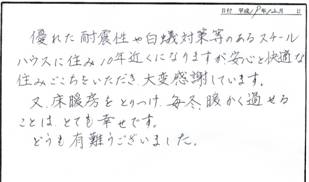 日付 平成19年12月 日
優れた耐震性や白蟻対策等のあるスチール
ハウスに住み10年近くになりますが、安心と快適な
住みごこちをいただき大変感謝しています。
又、床暖房をとりつけ、毎冬、暖かく過せる
ことは、とても幸せです。
どうも有難うございました。